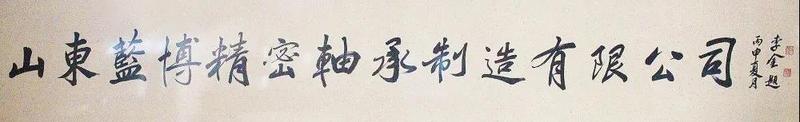 山東藍博精密軸承制造有限公司
丙申夏月
李金題